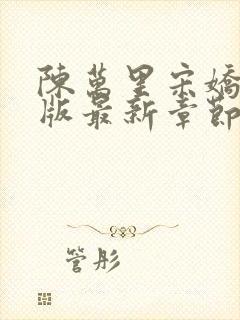 陳萬里宋嬌
版最新章節
管彤